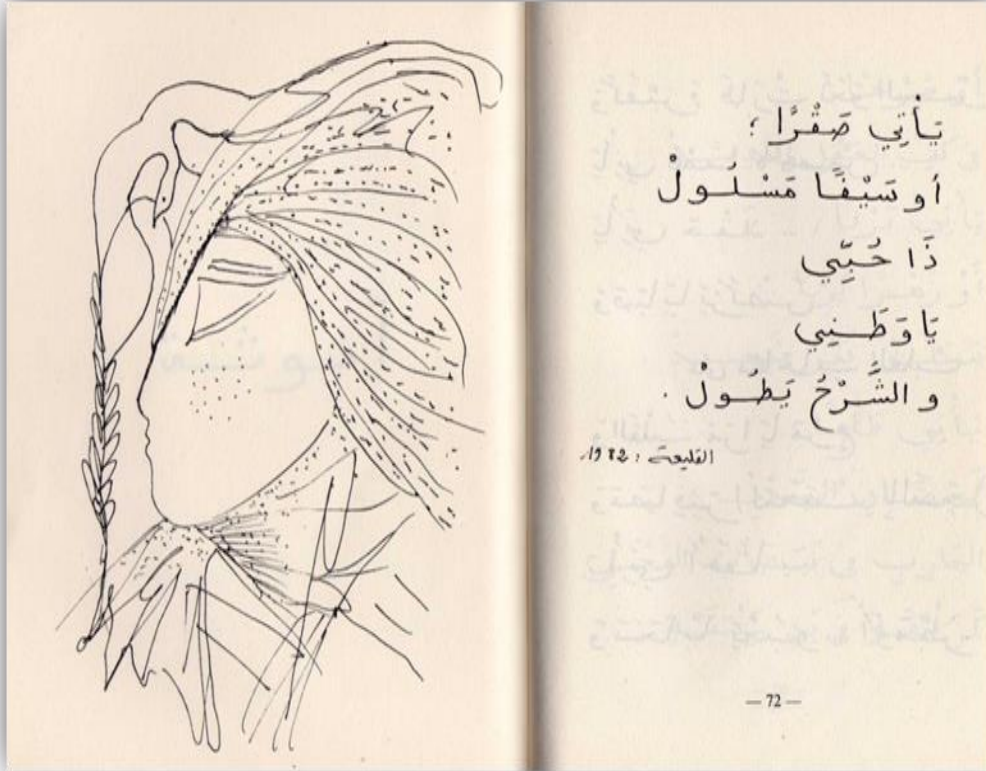 يَأتِي صَقْرًا ؛
أو سَيْفًا مَسْلُولْ
ذَا حُبِّي
يَا وَطَنِي
و الشَّرْحُ يَطُولْ .
القليعة : 1982
— 72 —